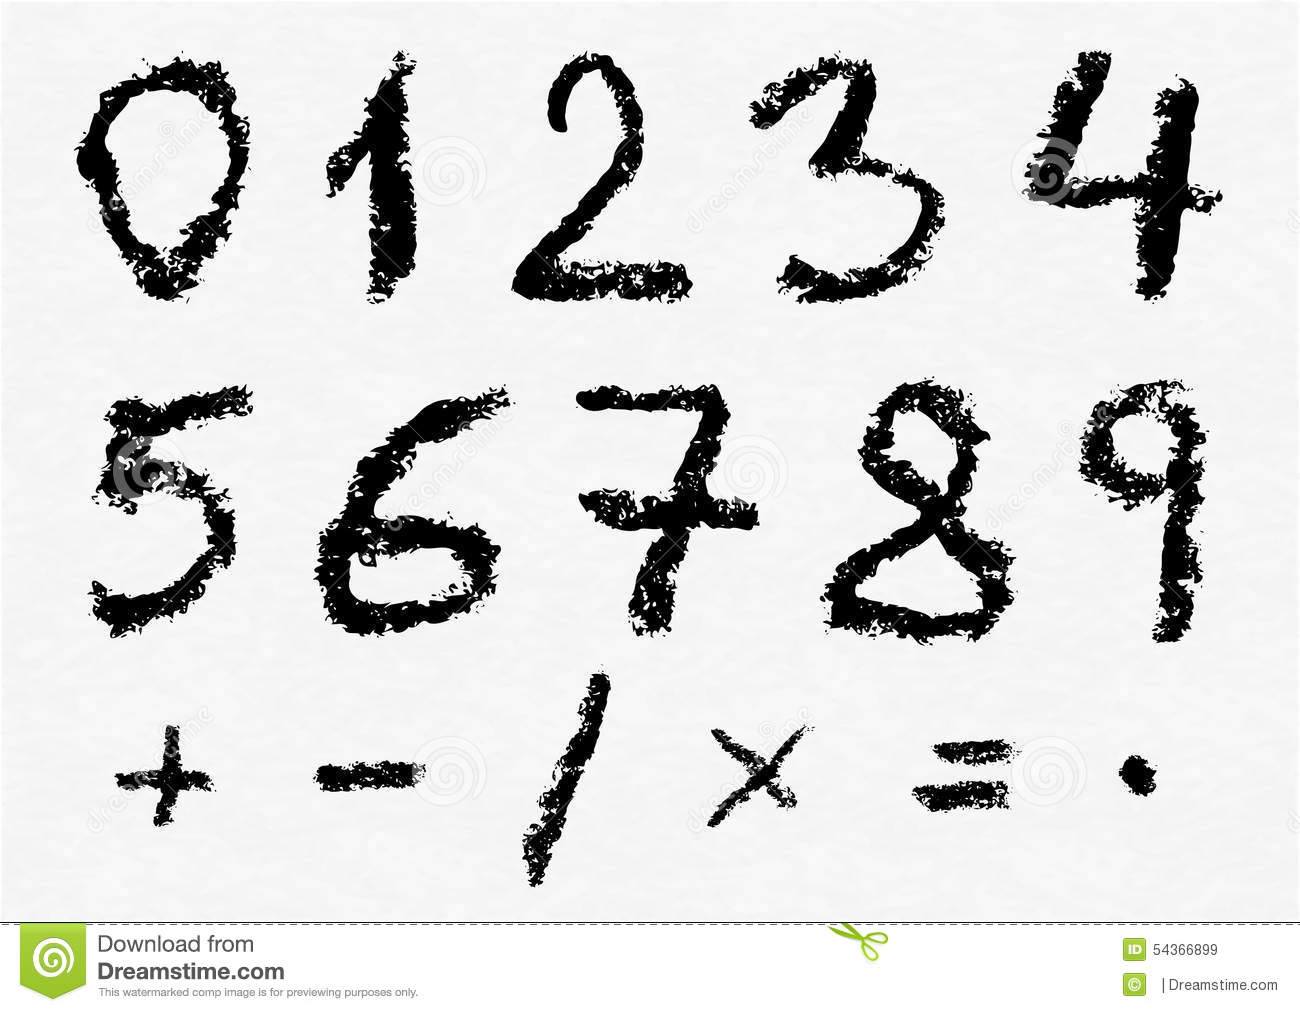 0 1 2 3 4
5 6 7 8 9
+ - / × = ·
Download from
Dreamstime.com
This watermarked comp image is for previewing purposes only.
ID 54366899
© | Dreamstime.com